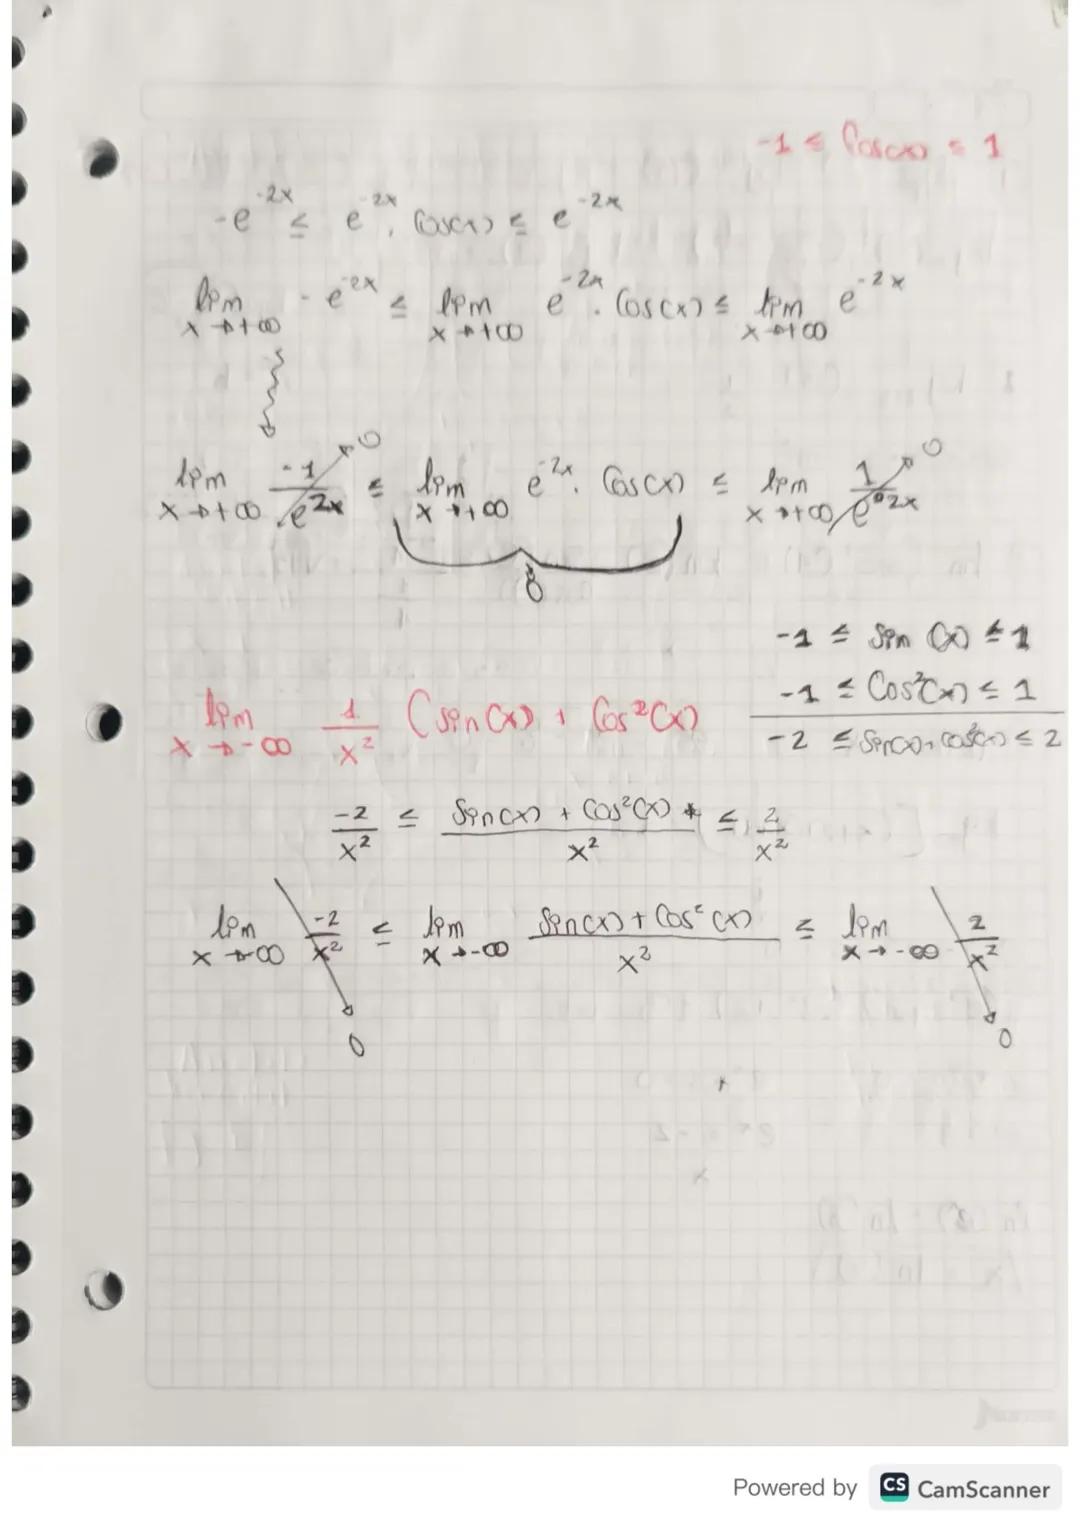 -1 ≤ Cos(x) ≤ 1
-e^-2x ≤ e^-2x . Cos(x) ≤ e^-2x
lim x→+∞ -e^-2x ≤ lim x→+∞ e^-2x . Cos(x) ≤ lim x→+∞ e^-2x
lim x→+∞ -1/e^2x → 0 ≤ lim x→+∞ e^-2x . Cos(x) ≤ lim x→+∞ 1/e^2x → 0
0
-1 ≤ Sin (x) ≤ 1
-1 ≤ Cos²(x) ≤ 1
-2 ≤ Sin(x) + Cos²(x) ≤ 2
lim x→-∞ 1/x² (sin(x) + Cos²(x)
-2/x² ≤ Sin(x) + Cos²(x) / x² ≤ 2/x²
lim x→-∞ -2/x² ≤ lim x→-∞ Sin(x) + Cos²(x) / x² ≤ lim x→-∞ 2/x²
0 0
Powered by CS CamScanner